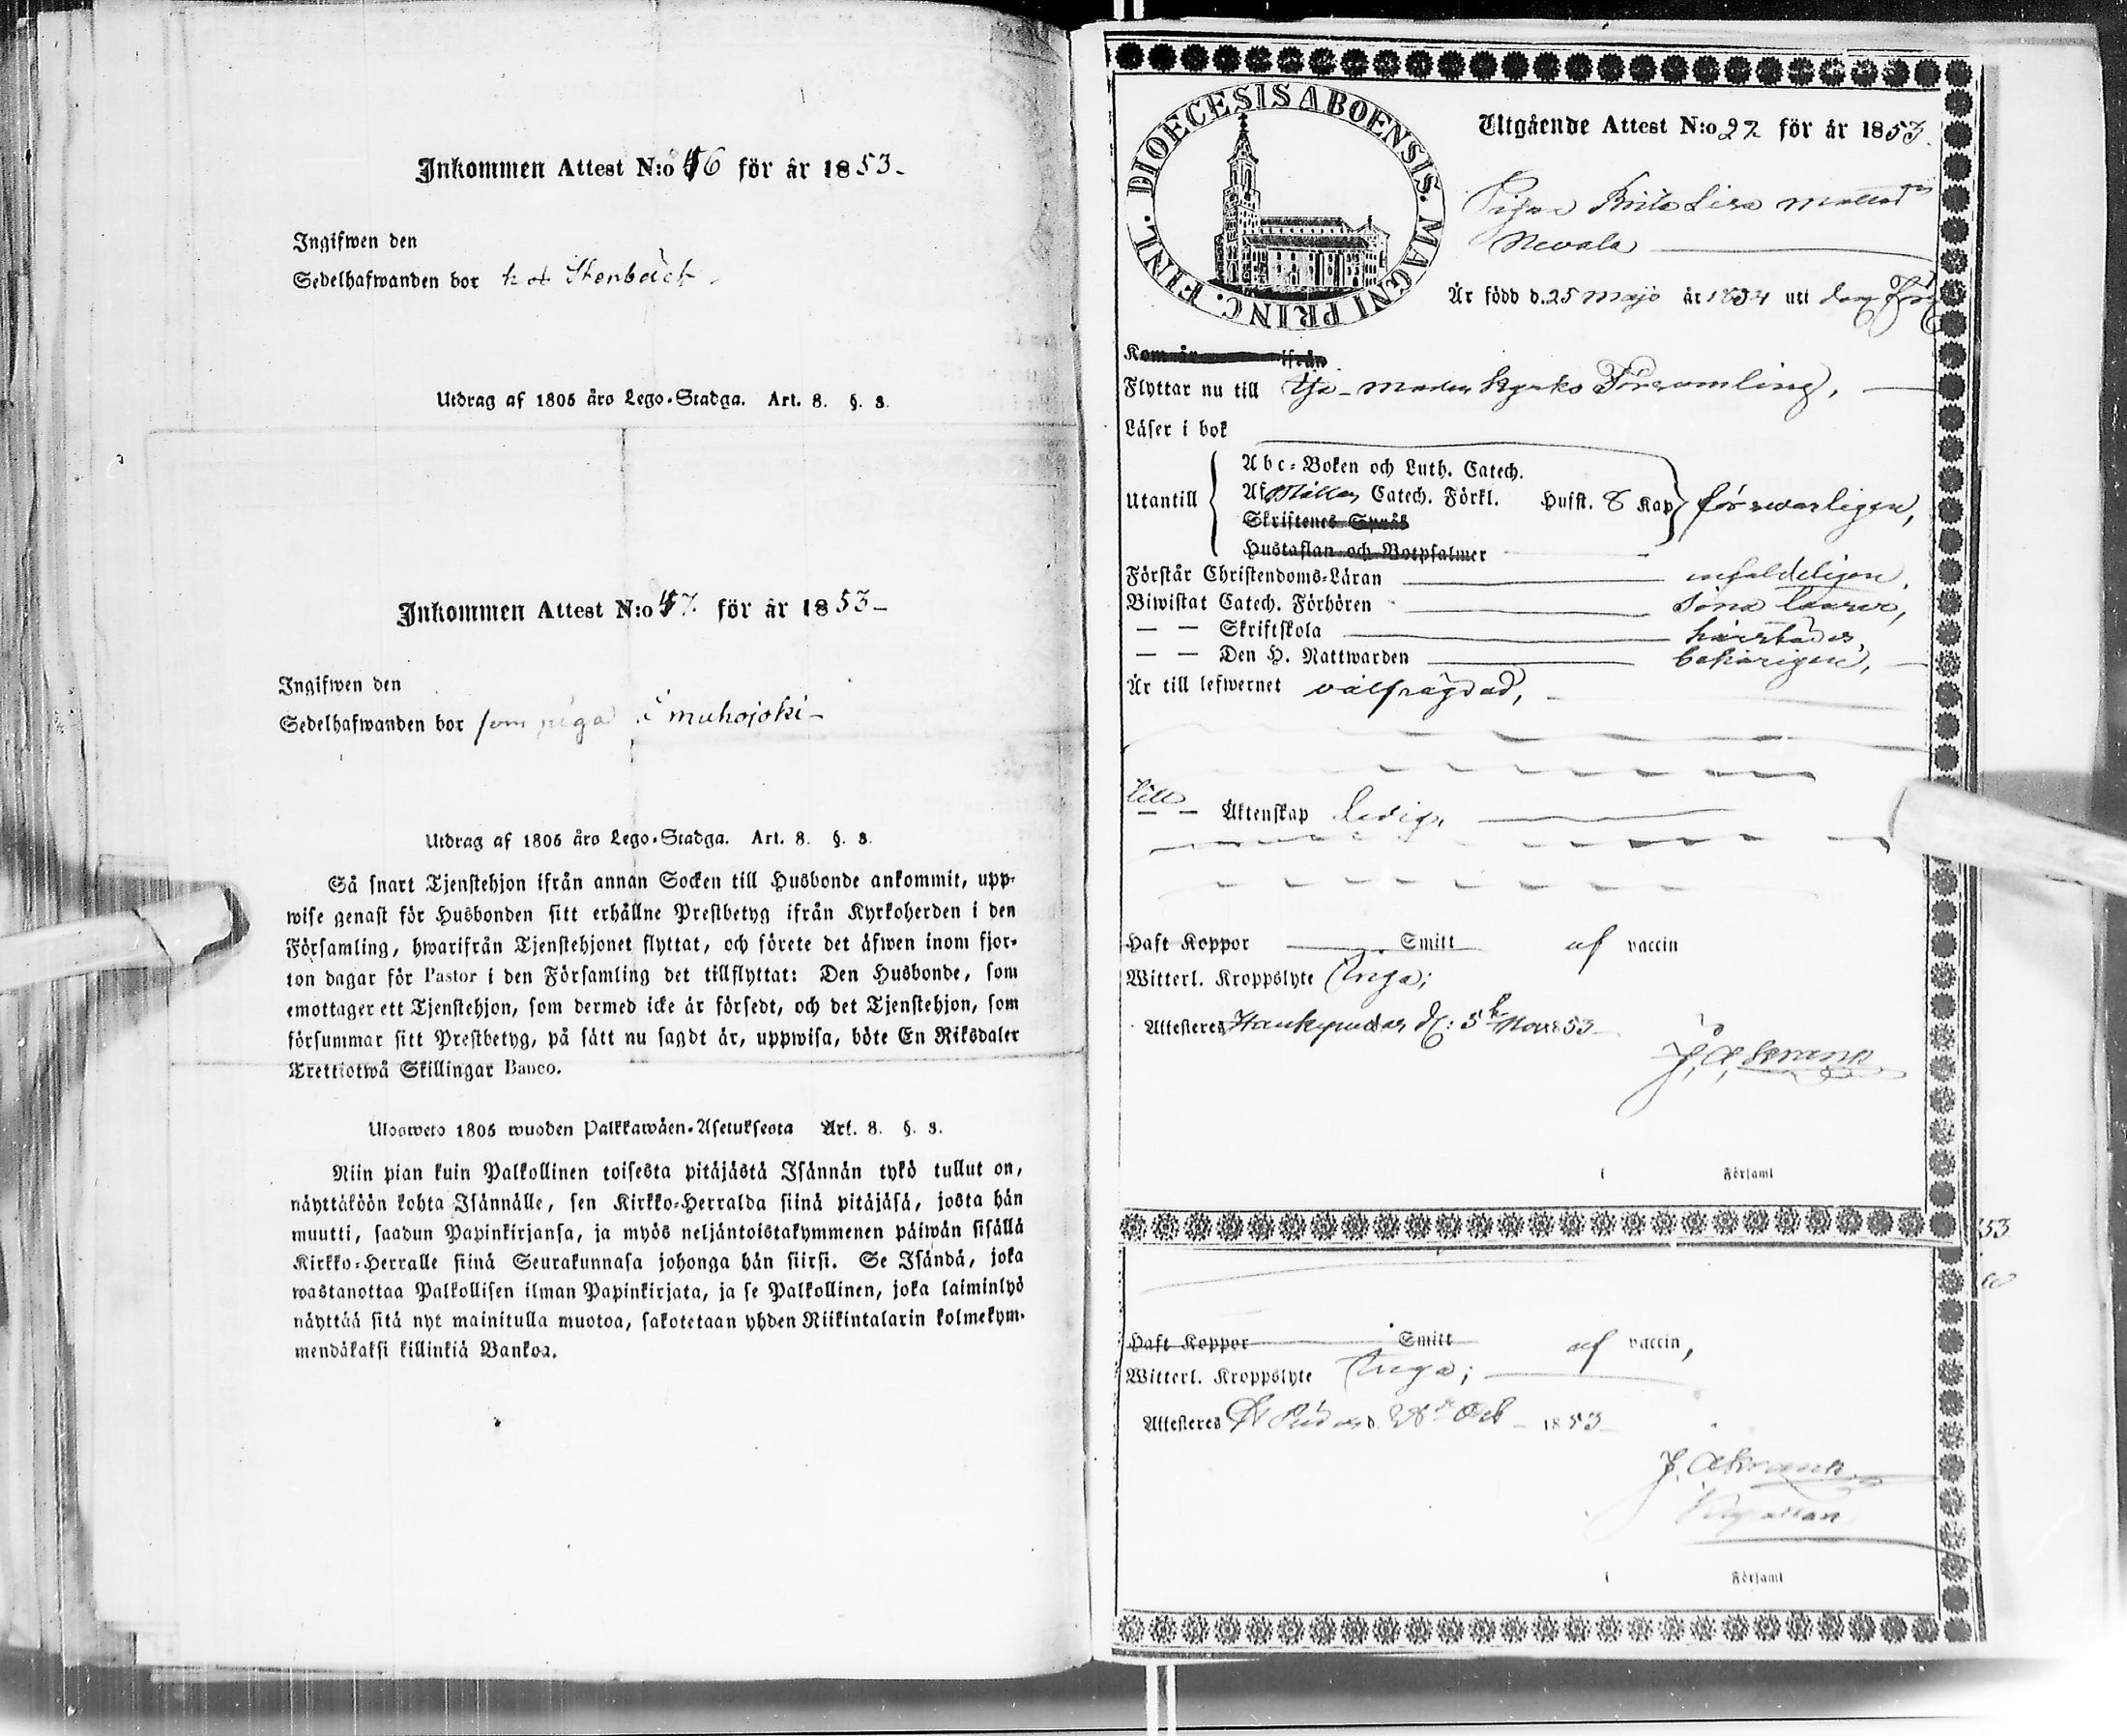 Inkommen Attest N:o 46 för år 1853.
Ingifwen den
Sedelhafwanden bor hos Stenbäck
Utdrag af 1805 års Lego-Stadga. Art. 8. §. 3.
Inkommen Attest N:o 47. för år 1853
Ingifwen den
Sedelhafwanden bor som piga i muhojoki
Utdrag af 1805 års Lego-Stadga. Art. 8. §. 3.
Så snart Tjenstehjon ifrån annan Socken till Husbonde ankommit, upp-
wise genast för Husbonden sitt erhållne Prestbetyg ifrån Kyrkoherden i den
Församling, hwarifrån Tjenstehjonet flyttat, och förete det äfwen inom fjor-
ton dagar för Pastor i den Församling det tillflyttat: Den Husbonde, som
emottager ett Tjenstehjon, som dermed icke är försedt, och det Tjenstehjon, som
försummar sitt Prestbetyg, på sätt nu sagdt är, uppwisa, böte En Riksdaler
Trettiotwå Skillingar Banco.
Ulosweto 1805 wuoden Palkkawäen-Asetuksesta Art. 8. §. 3.
Niin pian kuin Palkollinen toisesta pitäjästä Isännän tykö tullut on,
näyttäköön kohta Isännälle, sen Kirkko-Herralda siinä pitäjäsä, josta hän
muutti, saadun Papinkirjansa, ja myös neljäntoistakymmenen päiwän sisällä
Kirkko-Herralle siinä Seurakunnasa johonga hän siirsi. Se Isändä, joka
wastanottaa Palkollisen ilman Papinkirjata, ja se Palkollinen, joka laiminlyö
näyttää sitä nyt mainitulla muotoa, sakotetaan yhden Riikintalarin kolmekym-
mendäkaksi killinkiä Bankoa.
DIOECESIS ABOENSIS. MAGNI PRINC. FINL.
Utgående Attest N:o 22 för år 1853.
Pigan Brita Lisa Mattsd
Nevala
Är född d. 25 Maji år 1834 uti
Kom år ifrån
Flyttar nu till Ijo moder kyrko Församling,
Läser i bok
Abc-Boken och Luth. Catech.
Utantill Af Catech. Förkl. Husst. 8 Kap försvarligen,
Skriftenes Språk
Hustaflan och Botpsalmer
Förstår Christendoms-Läran enfaldeligen,
Biwistat Catech. Förhören sina
— — Skriftskola härstädes,
— — Den H. Nattwarden behörigen,
Är till lefwernet välfrägdad,
till
— — Äktenskap ledig,
Haft Koppor Smitt af vaccin
Witterl. Kroppslyte Inga;
Attesteres Haukipudas d: 5 Nov 1853
J. A. Krank
i Församl
53
Haft Koppor Smitt af vaccin,
Witterl. Kroppslyte Inga;
Attesteres d. 28 Oct 1853
J. A. Krank
Kapellan
i Församl